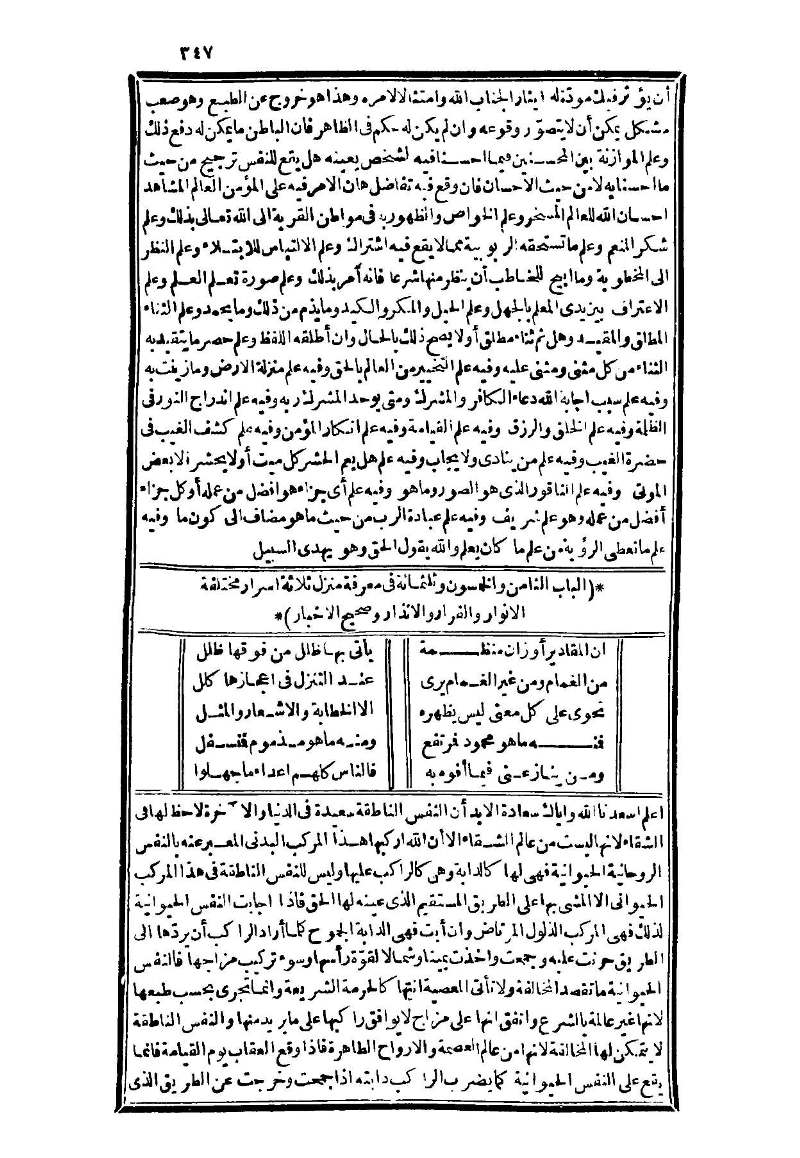 ٣٤٧
أن يؤثر فيك مودّته له ايثار الجناب الله وامتثالالامره وهذا هو خروج عن الطبع وهو صعب
مشكل يمكن أن لا يتصوّر وقوعه وان لم يكن له حكم فى الظاهر فان الباطن ما يمكن له دفع ذلك
وعلم الموازنة بين المحسنين فيما احسنا فيه لشخص بعينه هل يقع للنفس ترجيح من حيث
ما احسنا به لا من حيث الاحسان فان وقع فيه تفاضل هان الامر فيه على المؤمن العالم المشاهد
احسان الله للعالم المسخر وعلم الخواص والظهور به فى مواطن القربة الى الله تعالى بذلك وعلم
شكر المنعم وعلم ما تستحقه الربوبية مما لا يقع فيه اشتراك وعلم الالتماس للابتلاء وعلم النظر
الى المخطوبة وما ابيح للخاطب أن ينظر منها شرعا فانه أمر بذلك وعلم صورة تعلم العلم وعلم
الاعتراف بين يدى المعلم بالجهل وعلم الحيل والمكر والكيد وما يذم من ذلك وما يحمد وعلم الثناء
المطلق والمقيد وهل ثم ثناء مطلق أو لا يصح ذلك بالحال وان أطلقه اللفظ وعلم حصر ما يتقيد به
الثناء من كل مثنى ومثنى عليه وفيه علم التخيير من العالم بالحق وفيه علم منزلة الارض وما زينت به
وفيه علم سبب اجابة الله دعاء الكافر والمشرك ومتى يوحد المشرك ربه وفيه علم اندراج النور فى
الظلمة وفيه علم الخلق والرزق وفيه علم القيامة وفيه علم انكار المؤمن وفيه علم كشف الغيب فى
حضرة الغيب وفيه علم من ينادى ولا يجاب وفيه علم هل يعم الحشر كل ميت أو لا يحشر الا بعض
الموتى وفيه علم الناقور الذى هو الصور وما هو وفيه علم أى جزاء هو افضل من عمله أو كل جزاء
أفضل من عمله وهو علم شريف وفيه علم عبادة الرب من حيث ما هو مضاف الى كون ما وفيه
علم ما تعطى الرؤية من علم ما كان يعلم والله يقول الحق وهو يهدى السبيل
*(الباب الثامن والخمسون وثلثمائة فى معرفة منزل ثلاثة اسرار مختلفة
الانوار والفرار والانذار وصحيح الاخبار)*
ان المقادير أوزان منظمة يأتى بها ظلل من فوقها ظلل
من الغمام ومن غير الغمام يرى عند التنزل فى اعجازها كلل
تحوى على كل معنى ليس يظهره الا الخطابة والاشعار والمثل
فمنه ما هو محمود فمرتفع ومنه ما هو مذموم فمنسفل
ومن ينازعنى فيما أفوه به فالناس كلهم اعداء ما جهلوا
اعلم اسعدنا الله واياك سعادة الابد أن النفس الناطقة سعيدة فى الدنيا والآخرة لاحظ لها فى
الشقاء لانها ليست من عالم الشقاء الا أن الله اركبها هذا المركب البدنى المعبر عنه بالنفس
الروحانية الحيوانية فهى لها كالدابة وهى كالراكب عليها وليس للنفس الناطقة فى هذا المركب
الحيوانى الا المشى بها على الطريق المستقيم الذى عينه لها الحق فاذا اجابت النفس الحيوانية
لذلك فهى المركب الذلول المرتاض وان أبت فهى الدابة الجموح كلما أراد الراكب أن يردّها الى
الطريق حرنت عليه وجمحت واخذت يمينا وشمالا لقوّة رأسها وسوء تركيب مزاجها فالنفس
الحيوانية ما تقصد المخالفة ولا تأتى المعصية انتهاكا لحرمة الشريعة وانما تجرى بحسب طبعها
لانها غير عالمة بالشرع واتفق انها على مزاج لا يوافق راكبها على ما يريد منها والنفس الناطقة
لا يتمكن لها المخالفة لانها من عالم العصمة والارواح الطاهرة فاذا وقع العقاب يوم القيامة فانما
يقع على النفس الحيوانية كما يضرب الراكب دابته اذا جمحت وخرجت عن الطريق الذى